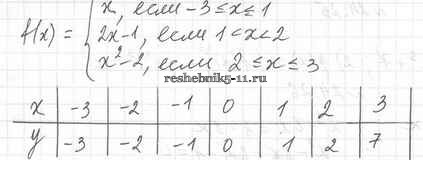 x, если -3≤x≤1
f(x) = 2x-1, если 1<x<2
x²-2, если 2≤x≤3
reshebnik5-11.ru
x -3 -2 -1 0 1 2 3
y -3 -2 -1 0 1 2 7